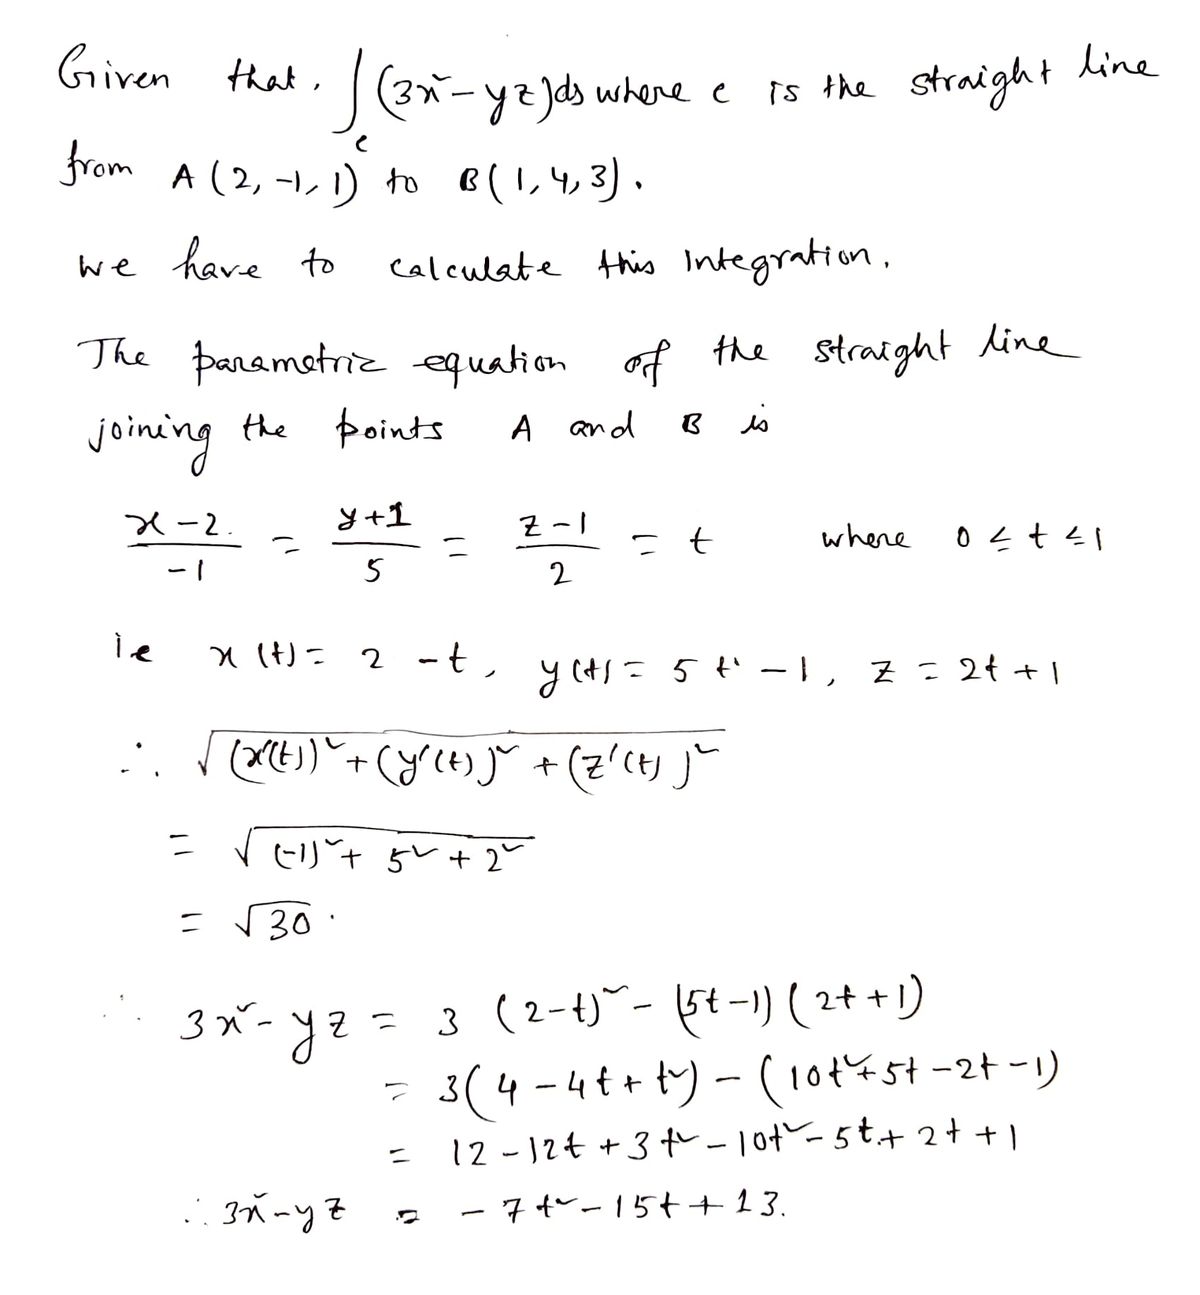 Given that, ∫_c (3x² - yz)ds where c is the straight line
from A(2, -1, 1) to B(1, 4, 3).
we have to calculate this Integration.
The parametric equation of the straight line
joining the points A and B is
(x - 2)/(-1) = (y + 1)/5 = (z - 1)/2 = t where 0 ≤ t ≤ 1
ie x(t) = 2 - t, y(t) = 5t - 1, z = 2t + 1
∴ √((x'(t))² + (y'(t))² + (z'(t))²)
= √((-1)² + 5² + 2²)
= √30.
∴ 3x² - yz = 3(2 - t)² - (5t - 1)(2t + 1)
= 3(4 - 4t + t²) - (10t² + 5t - 2t - 1)
= 12 - 12t + 3t² - 10t² - 5t + 2t + 1
∴ 3x² - yz = -7t² - 15t + 13.